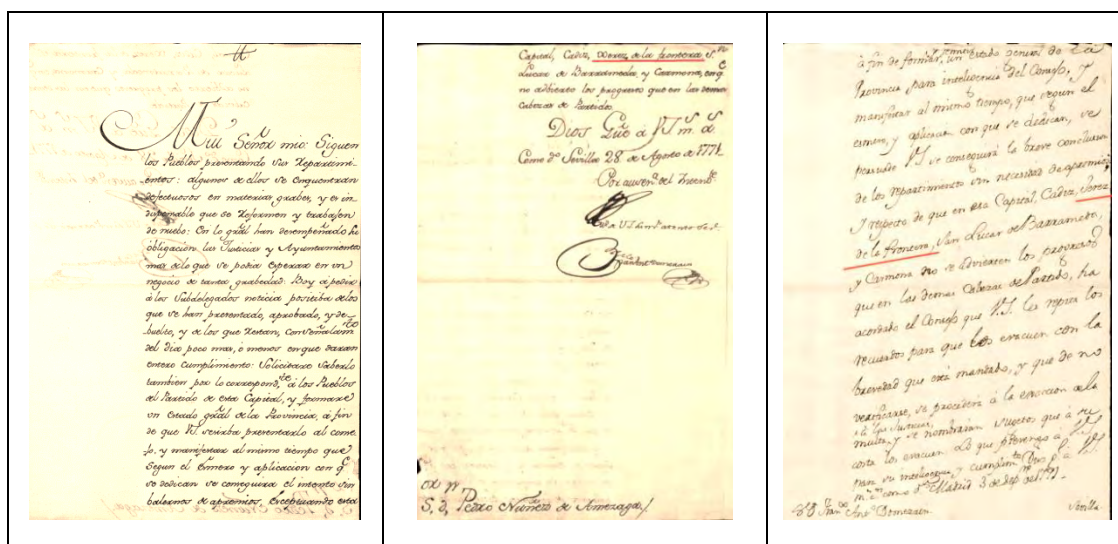 Muí Señor mio: Siguen
los Pueblos presentando sus Repartimi-
entos: algunos de ellos se enquentran
defectuosos en materias graves, y es in-
dispensable que se Reformen y trabajen
de nuebo: En lo gràl han desempeñado su
obligacion las Justicias y Ayuntamientos
mas de lo que se podia esperar en vn
negocio de tanta grabedad: Boy á pedir
á los Subdelegados noticia positiba de los
que se han presentado, aprobado, y de-
buelto, y de los que Restan, con Señalam.to
del dia poco mas, ó menos en que daran
entero cumplimiento: Solicitare saberlo
tambien por lo correspond.te á los Pueblos
del Partido de esta Capital, y formaré
vn Estado gràl de la Provincia, á fin
de que VS. se sirba presentarlo al conse-
jo, y manifestar al mismo tiempo que
Segun el Esmero y aplicacion con q.e
se dedican se conseguira el intento sin
balernos de apremios, Exceptuando esta
Capital, Cadiz, Xerez de la frontera, S.n
Lucar de Barrameda, y Carmona, en q.e
no advierto los progresos que en las demas
Cabezas de Partido.
Dios Gue á VS m.s a.s
Como d.o Sevilla 28 de Agosto de 1771
Por ausen.a del Intend.te
S.r D. Pedro Nuñez de Amezaga
á fin de formar un estado general de la
Provincia para inteligencia del Consejo, y
manifestar al mismo tiempo, que segun el
esmero, y aplicacion con que se dedican, se
persuade VS se conseguirá la breve conclusion
de los repartimientos sin necesidad de apremios
Y respecto de que en esa Capital, Cadiz, Jerez
de la frontera, San Lucar de Barrameda,
y Carmona no se advierten los progresos
que en las demas Cabezas de Partido, ha
acordado el Consejo que V.S. les repita los
recuerdos para que los evacuen con la
brevedad que está mandado, y que de no
verificarse, se procederá á la exaccion de la
á las Justicias,
multa, y se nombraran sugetos que á su
costa los evacuen. Lo que prevengo á VS
para su inteligencia, y cumplim.to Dios g.e á VS
m.s a.s como d.o Madrid 3 de Sep.re de 1771
S.r D. Fran.co Ant.o Domezain
Sevilla